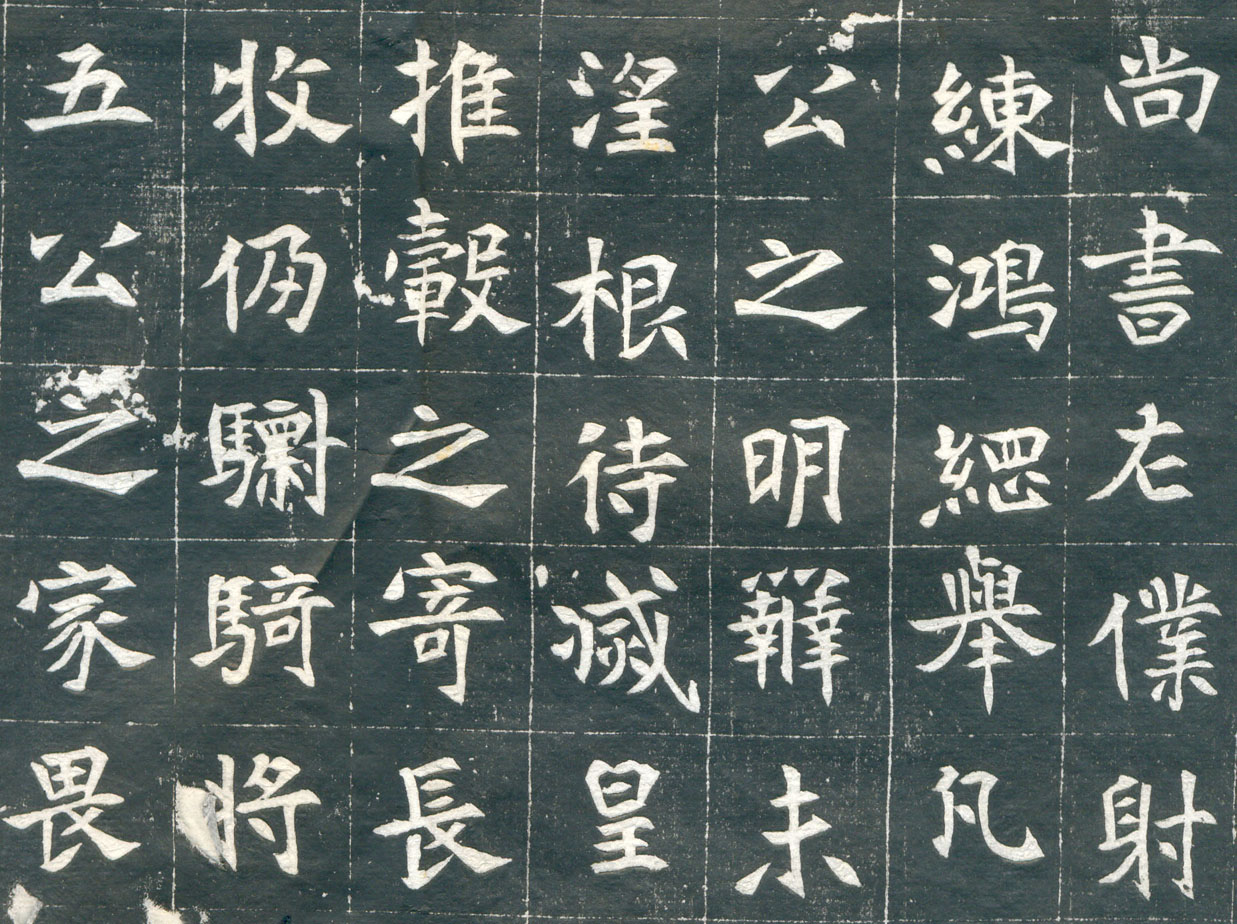 尚書左僕射
練鴻緫舉凡
公之明辯未
涅根待滅皇
推轂之寄長
牧仍驃騎將
五公之家畏